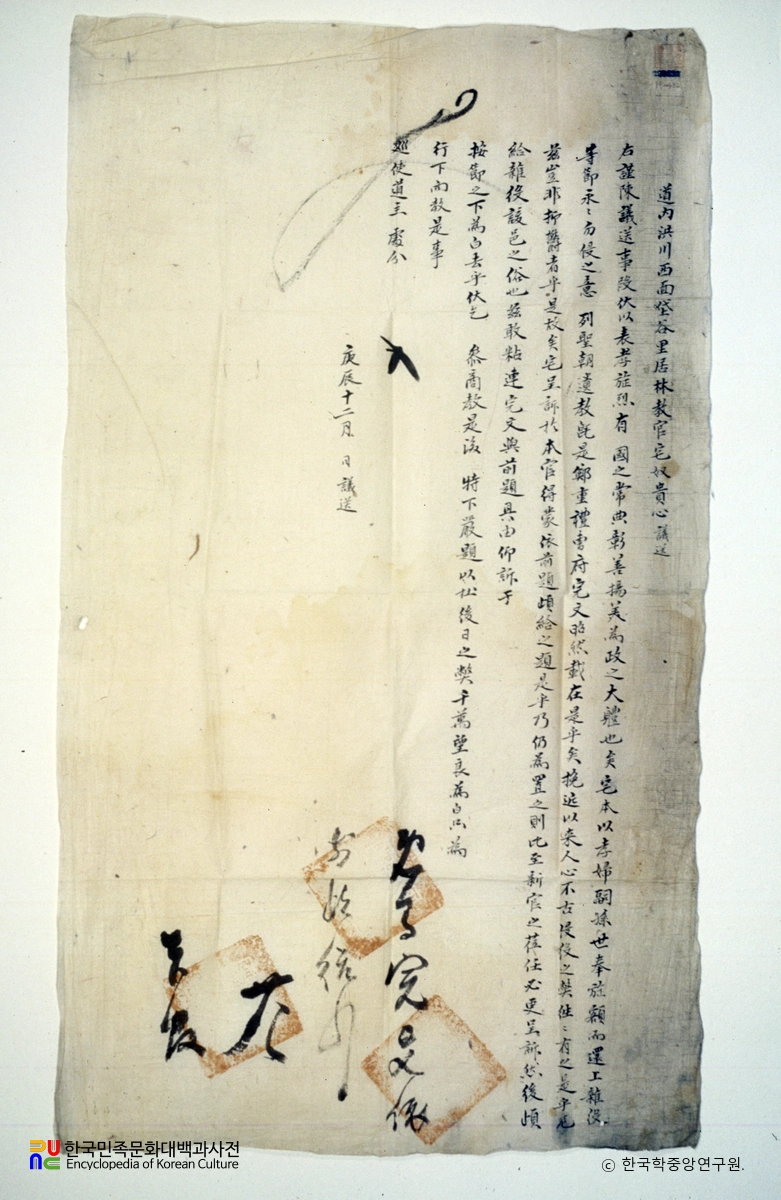 道內洪川西面垈谷里居林敎官宅奴貴心 議送
右謹陳議送事段伏以表孝旌烈有 國之常典彰善揭美爲政之大軆也矣宅本以孝婦嗣孫世奉旌額而還上雜役
等節永〻勿侵之意 列聖朝遺敎旣是鄭重禮曺府完文昭然載在是乎矣挽近以來人心不古侵役之獘往〻有之是乎尼
玆豈非抑欝者乎是故矣宅呈訴於本官得蒙依前題頉給之題是乎乃仍爲置之則比至新官之莅任必更呈訴然後頉
給雜役該邑之俗也玆敢粘連完文與前題具由仰訴于
按節之下爲白去乎伏乞 參商敎是後 特下嚴題以杜後日之獘千萬望良爲白只爲
行下向敎是事
巡使道主 處分
庚辰十二月 日議送
完文依
한국민족문화대백과사전
Encyclopedia of Korean Culture
ⓒ 한국학중앙연구원.